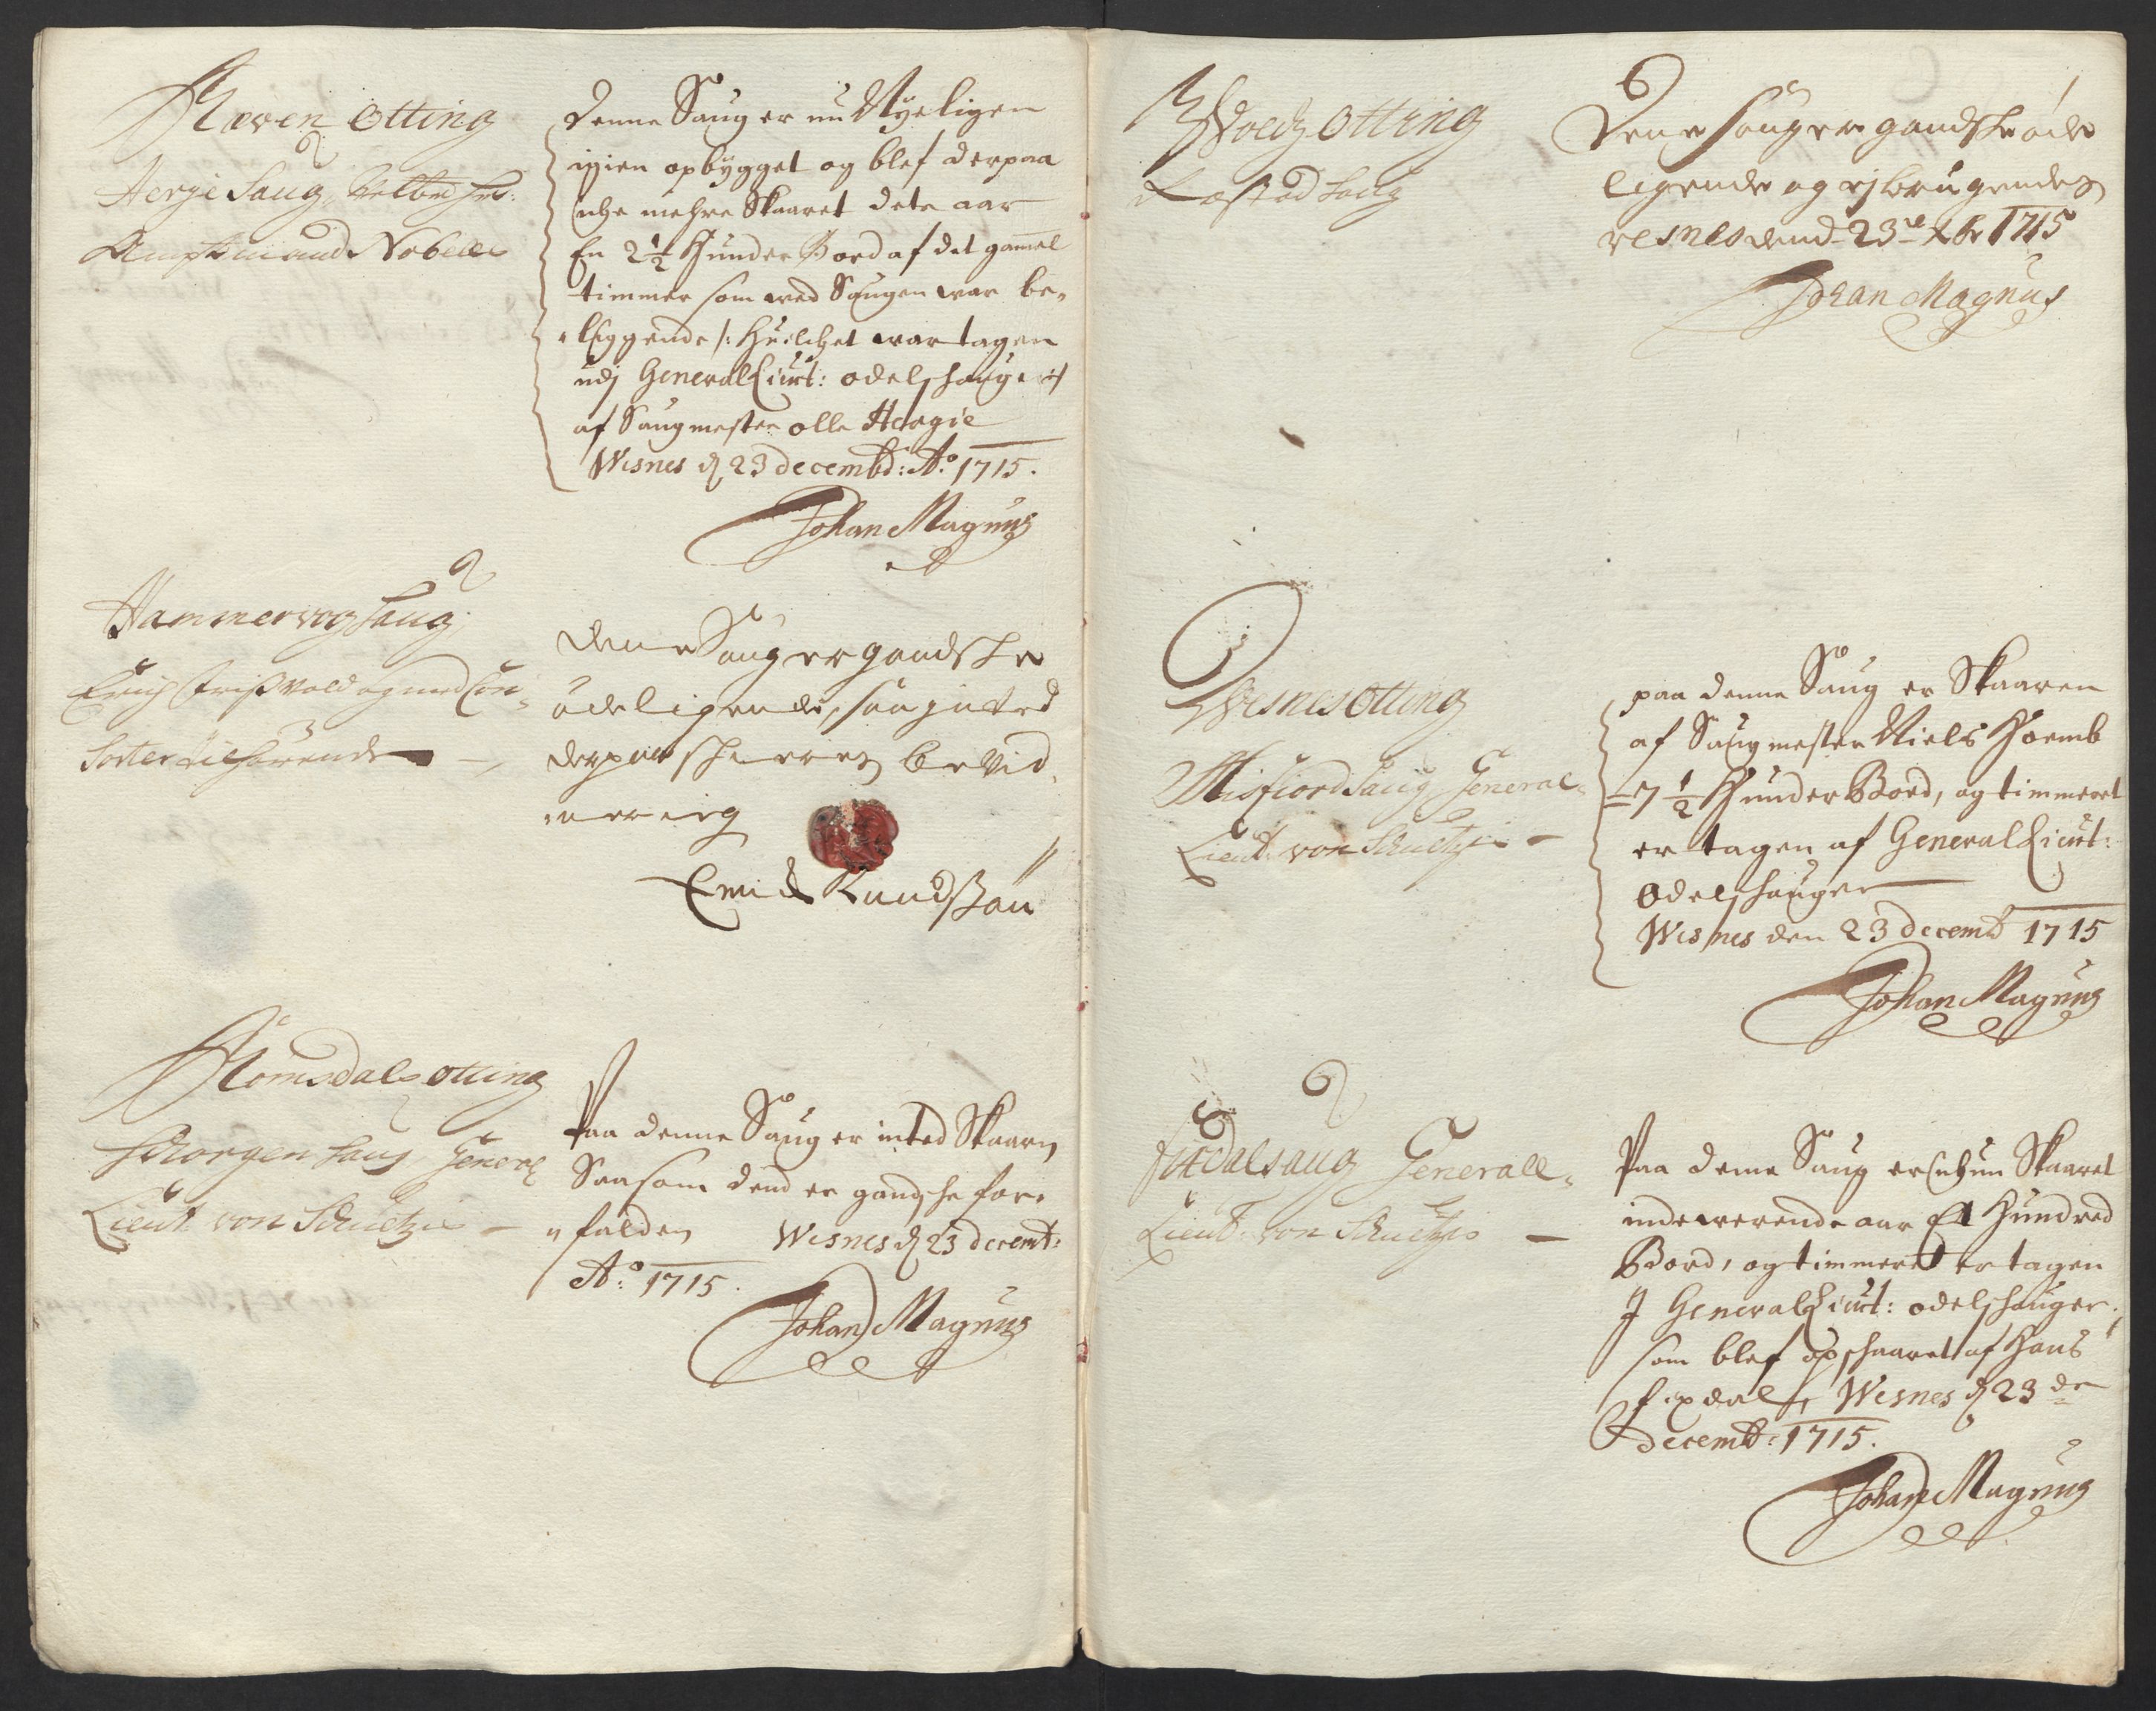 Ræven Otting
Herje Saug, Velb: Hr:
Amptmand Nobell
Denne Saug er nu Nyeligen
igien opbygget og blef derpaa
icke mehre Skaaret dete aar
En 2½ Hunder Bord af det gamel
timmer som wed Saugen war be-
liggende /: Huilchet war tagen
udj General Lieut: odelshauge :/
af Saugmester olle Hergie
Wisnes d 23 decembd: Ao 1715.
Johan Magnus
Hammervog Saug,
Erich og med Con-
sorter tilhørende
Denne Saug er gandske
ødeligende, saa inted
derpaa skaaren bevid-
ner ieg
Erich Knudssøn
Romsdals otting
Schorgen Saug General
Lieut. von Schultzes
Paa denne Saug er inted Skaaren
Saasom dend er gandsche for-
falden Wisnes d 23 decemb:
Ao: 1715.
Johan Magnus
Woldz Otting
Saug
Denne Saug er gandske øde
ligende og ej brugendes
vesnes dend 23de Xbr 1715
Johan Magnus
Wisnes Otting
Misfiord Saug General
Lieut: von Schultzes
paa denne Saug er Skaaren
af Saugmester Niels Hoemb
7½ Hunder Bord, og timmeret
er tagen af General Lieut:
Odelshauger
Wisnes den 23 decemb 1715
Johan Magnus
Fixdalsaug Generall
Lieut: von Schultzes
Paa denne Saug er ichun Skaaret
indewerende aar Et Hundred
Bord, og timmeret er tagen
J General Lieut: odelshauger,
som blef opschaaret af Hans
Fixdal, Wisnes d 23de
decemb: 1715.
Johan Magnus